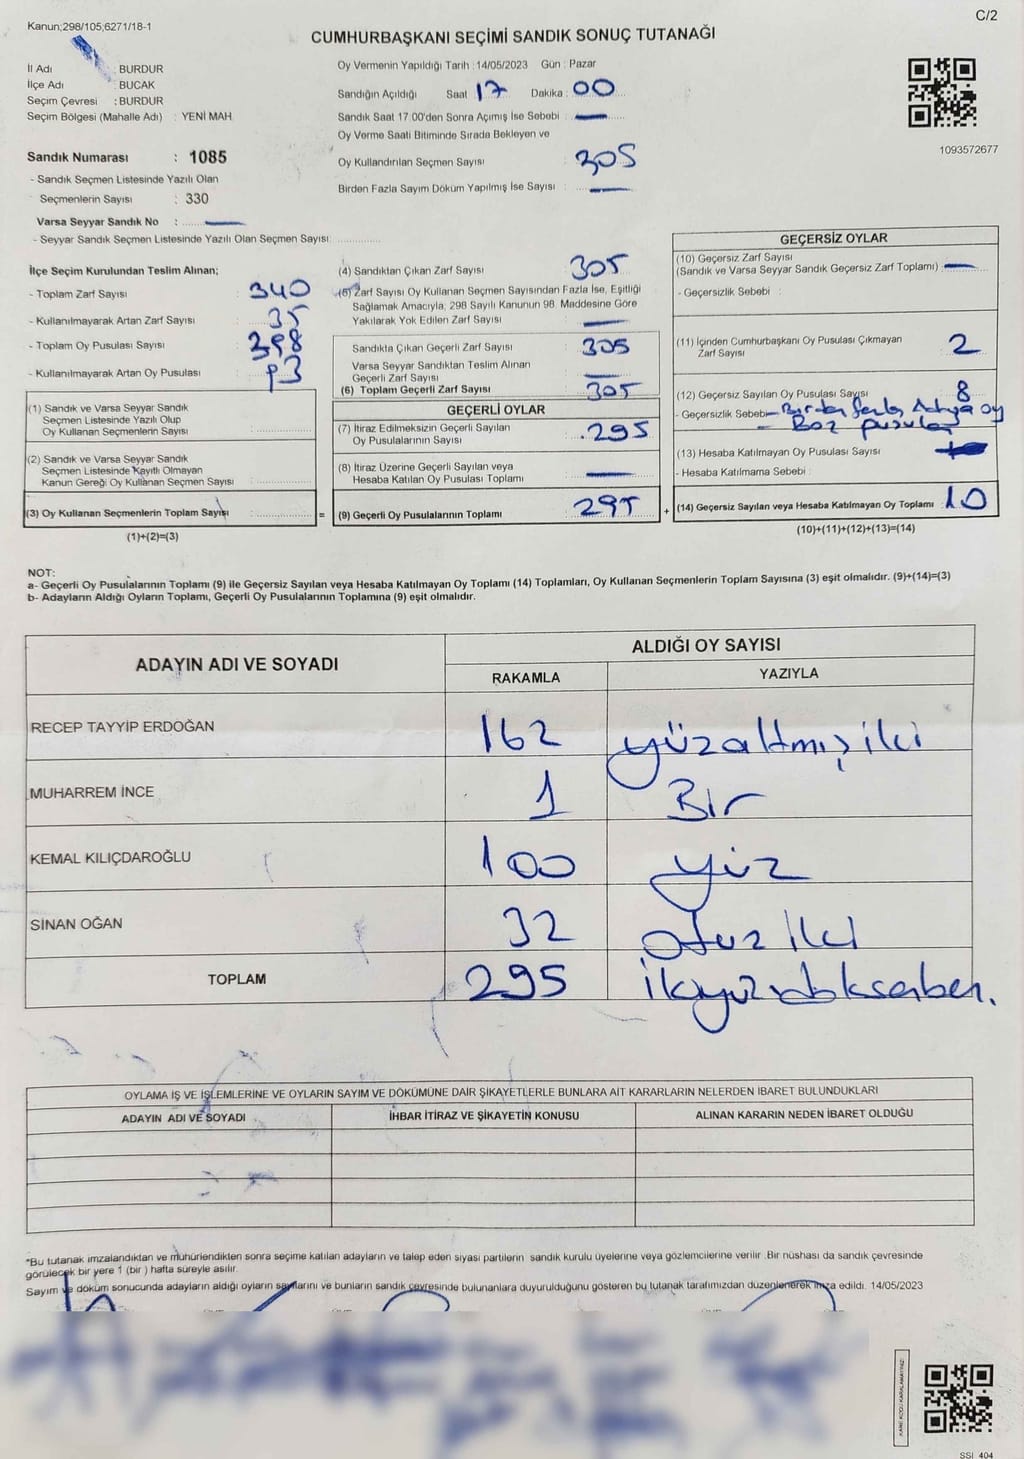 Kanun;298/105;6271/18-1
C/2
CUMHURBAŞKANI SEÇİMİ SANDIK SONUÇ TUTANAĞI
İl Adı : BURDUR
İlçe Adı : BUCAK
Seçim Çevresi : BURDUR
Seçim Bölgesi (Mahalle Adı) : YENİ MAH.
Sandık Numarası : 1085
- Sandık Seçmen Listesinde Yazılı Olan
Seçmenlerin Sayısı : 330
Varsa Seyyar Sandık No :
- Seyyar Sandık Seçmen Listesinde Yazılı Olan Seçmen Sayısı:
Oy Vermenin Yapıldığı Tarih : 14/05/2023 Gün : Pazar
Sandığın Açıldığı Saat 17 Dakika : 00
Sandık Saat 17 00'den Sonra Açımış İse Sebebi :
Oy Verme Saati Bitiminde Sırada Bekleyen ve
Oy Kullandırılan Seçmen Sayısı : 305
Birden Fazla Sayım Döküm Yapılmış İse Sayısı :
1093572677
İlçe Seçim Kurulundan Teslim Alınan;
- Toplam Zarf Sayısı : 340
- Kullanılmayarak Artan Zarf Sayısı : 35
- Toplam Oy Pusulası Sayısı : 398
- Kullanılmayarak Artan Oy Pusulası : 93
(1) Sandık ve Varsa Seyyar Sandık
Seçmen Listesinde Yazılı Olup
Oy Kullanan Seçmenlerin Sayısı :
(2) Sandık ve Varsa Seyyar Sandık
Seçmen Listesinde Kayıtlı Olmayan
Kanun Gereği Oy Kullanan Seçmen Sayısı :
(3) Oy Kullanan Seçmenlerin Toplam Sayısı =
(1)+(2)=(3)
(4) Sandıktan Çıkan Zarf Sayısı : 305
(5) Zarf Sayısı Oy Kullanan Seçmen Sayısından Fazla İse, Eşitliği
Sağlamak Amacıyla; 298 Sayılı Kanunun 98. Maddesine Göre
Yakılarak Yok Edilen Zarf Sayısı :
Sandıkta Çıkan Geçerli Zarf Sayısı : 305
Varsa Seyyar Sandıktan Teslim Alınan
Geçerli Zarf Sayısı :
(6) Toplam Geçerli Zarf Sayısı : 305
GEÇERLİ OYLAR
(7) İtiraz Edilmeksizin Geçerli Sayılan
Oy Pusulalarının Sayısı : 295
(8) İtiraz Üzerine Geçerli Sayılan veya
Hesaba Katılan Oy Pusulası Toplamı :
(9) Geçerli Oy Pusulalarının Toplamı : 295 +
GEÇERSİZ OYLAR
(10) Geçersiz Zarf Sayısı
(Sandık ve Varsa Seyyar Sandık Geçersiz Zarf Toplamı) :
- Geçersizlik Sebebi :
(11) İçinden Cumhurbaşkanı Oy Pusulası Çıkmayan
Zarf Sayısı : 2
(12) Geçersiz Sayılan Oy Pusulası Sayısı : 8
- Geçersizlik Sebebi - Birden fazla Adaya oy
- Boz pusula
(13) Hesaba Katılmayan Oy Pusulası Sayısı :
- Hesaba Katılmama Sebebi :
(14) Geçersiz Sayılan veya Hesaba Katılmayan Oy Toplamı : 10
(10)+(11)+(12)+(13)=(14)
NOT:
a- Geçerli Oy Pusulalarının Toplamı (9) ile Geçersiz Sayılan veya Hesaba Katılmayan Oy Toplamı (14) Toplamları, Oy Kullanan Seçmenlerin Toplam Sayısına (3) eşit olmalıdır. (9)+(14)=(3)
b- Adayların Aldığı Oyların Toplamı, Geçerli Oy Pusulalarının Toplamına (9) eşit olmalıdır.
ADAYIN ADI VE SOYADI ALDIĞI OY SAYISI
RAKAMLA YAZIYLA
RECEP TAYYİP ERDOĞAN 162 yüzaltmış iki
MUHARREM İNCE 1 Bir
KEMAL KILIÇDAROĞLU 100 yüz
SİNAN OĞAN 32 otuz iki
TOPLAM 295 ikiyüzdoksanbeş.
OYLAMA İŞ VE İŞLEMLERİNE VE OYLARIN SAYIM VE DÖKÜMÜNE DAİR ŞİKAYETLERLE BUNLARA AİT KARARLARIN NELERDEN İBARET BULUNDUKLARI
ADAYIN ADI VE SOYADI İHBAR İTİRAZ VE ŞİKAYETİN KONUSU ALINAN KARARIN NEDEN İBARET OLDUĞU
*Bu tutanak imzalandıktan ve mühürlendikten sonra seçime katılan adayların ve talep eden siyasi partilerin sandık kurulu üyelerine veya gözlemcilerine verilir. Bir nüshası da sandık çevresinde
görülecek bir yere 1 (bir ) hafta süreyle asılır.
Sayım ve döküm sonucunda adayların aldığı oyların sayılarını ve bunların sandık çevresinde bulunanlara duyurulduğunu gösteren bu tutanak tarafımızdan düzenlenerek imza edildi. 14/05/2023
KARE KODU KARALAMAYINIZ!
SSI 404